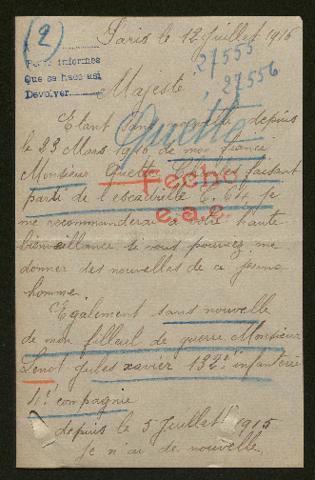 (2)
Paris le 12 Juillet 1916
27555
27556
Pedir informes
Que se hace así
Devolver
Majesté
Etant sans depuis
le 23 Mars de mon fiancé
Monsieur Guette faisant
Guette
Fecho
e.a.c.
partie de l'escadrille C. 61. je
me recommanderai à votre haute
bienveillance si vous pouviez me
donner des nouvelles de ce jeune
homme.
Egalement sans nouvelle
de mon filleul de guerre Monsieur
Lenot Jules Xavier 132e infanterie
4e compagnie
depuis le 5 Juillet 1915
Je n'ai de nouvelle.